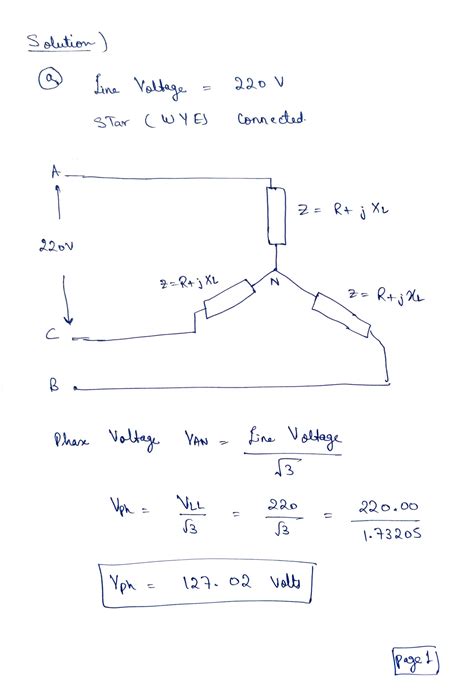 Solution)
(a) Line Voltage = 220 V
STar (WYE) connected.
A
Z = R+jXL
220V
Z=R+jXL
N
Z = R+jXL
C
B
Phase Voltage VAN = Line Voltage / √3
Vph = VLL / √3 = 220 / √3 = 220.00 / 1.73205
Vph = 127.02 Volts
Page 1